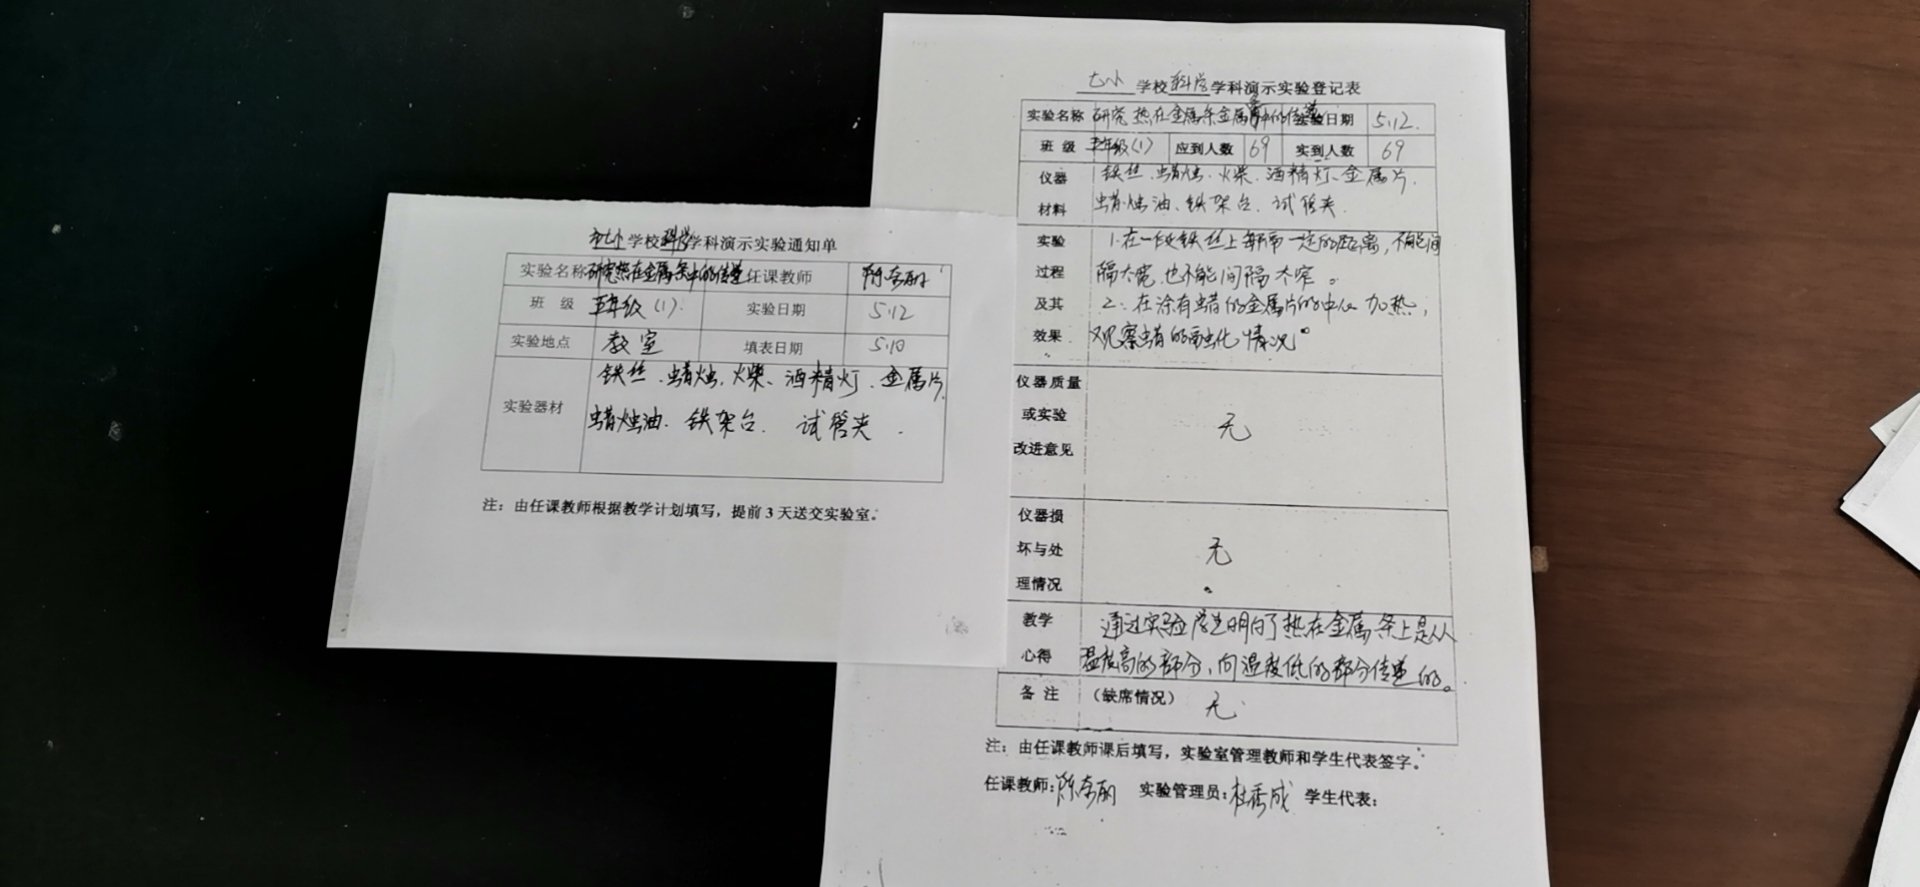 市七小学校科学学科演示实验通知单
实验名称 研究热在金属条中的传递 任课教师
班 级 五年级(1). 实验日期 5.12
实验地点 教室 填表日期 5.10
实验器材 铁丝、蜡烛、火柴、酒精灯、金属片、
蜡烛油、铁架台、试管夹.
注:由任课教师根据教学计划填写,提前3天送交实验室。
七小 学校科学学科演示实验登记表
实验名称 研究热在金属条金属片中的传递 实验日期 5.12.
班 级 五年级(1) 应到人数 69 实到人数 69
仪器 铁丝、蜡烛、火柴、酒精灯、金属片、
材料 蜡烛油、铁架台、试管夹.
实验 1.在一段铁丝上每隔一定的距离,不能间
过程 隔太宽,也不能间隔太窄。
及其 2、在涂有蜡的金属片的中心加热,
效果 观察蜡的融化情况。
仪器质量
或实验 无
改进意见
仪器损
坏与处 无
理情况
教学 通过实验学生明白了热在金属条上是从
心得 温度高的部分,向温度低的部分传递的。
备 注 (缺席情况) 无
注:由任课教师课后填写,实验室管理教师和学生代表签字。
任课教师: 实验管理员: 学生代表: